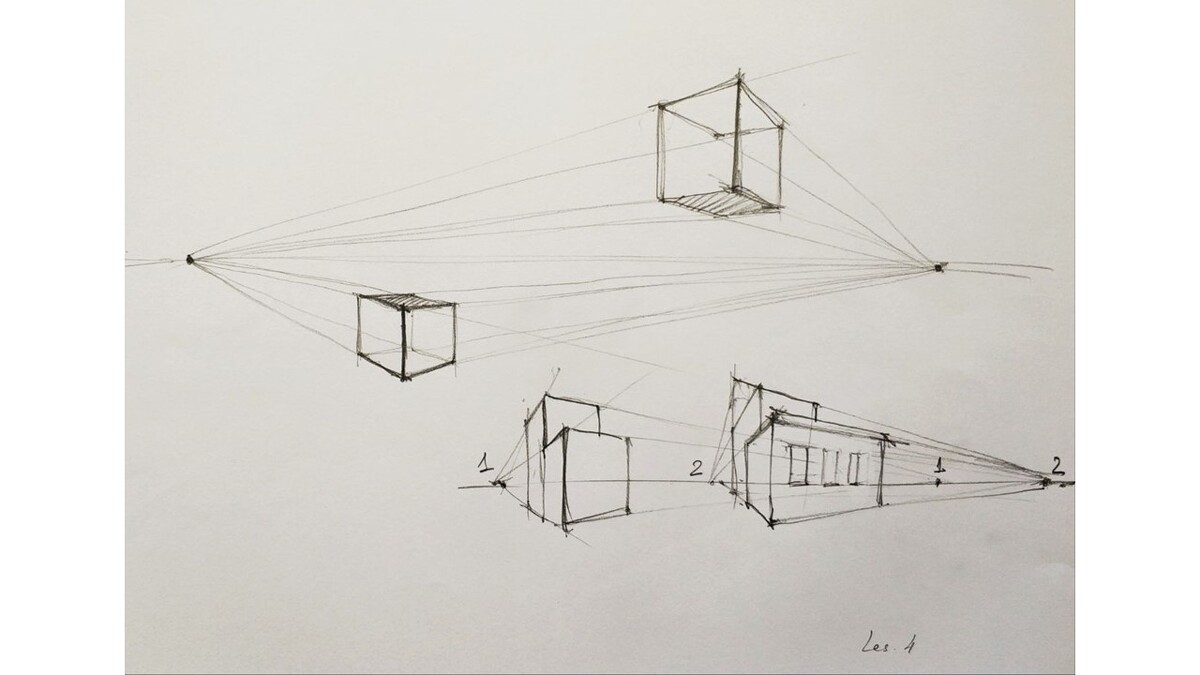 1
2
1
2
Les. 4